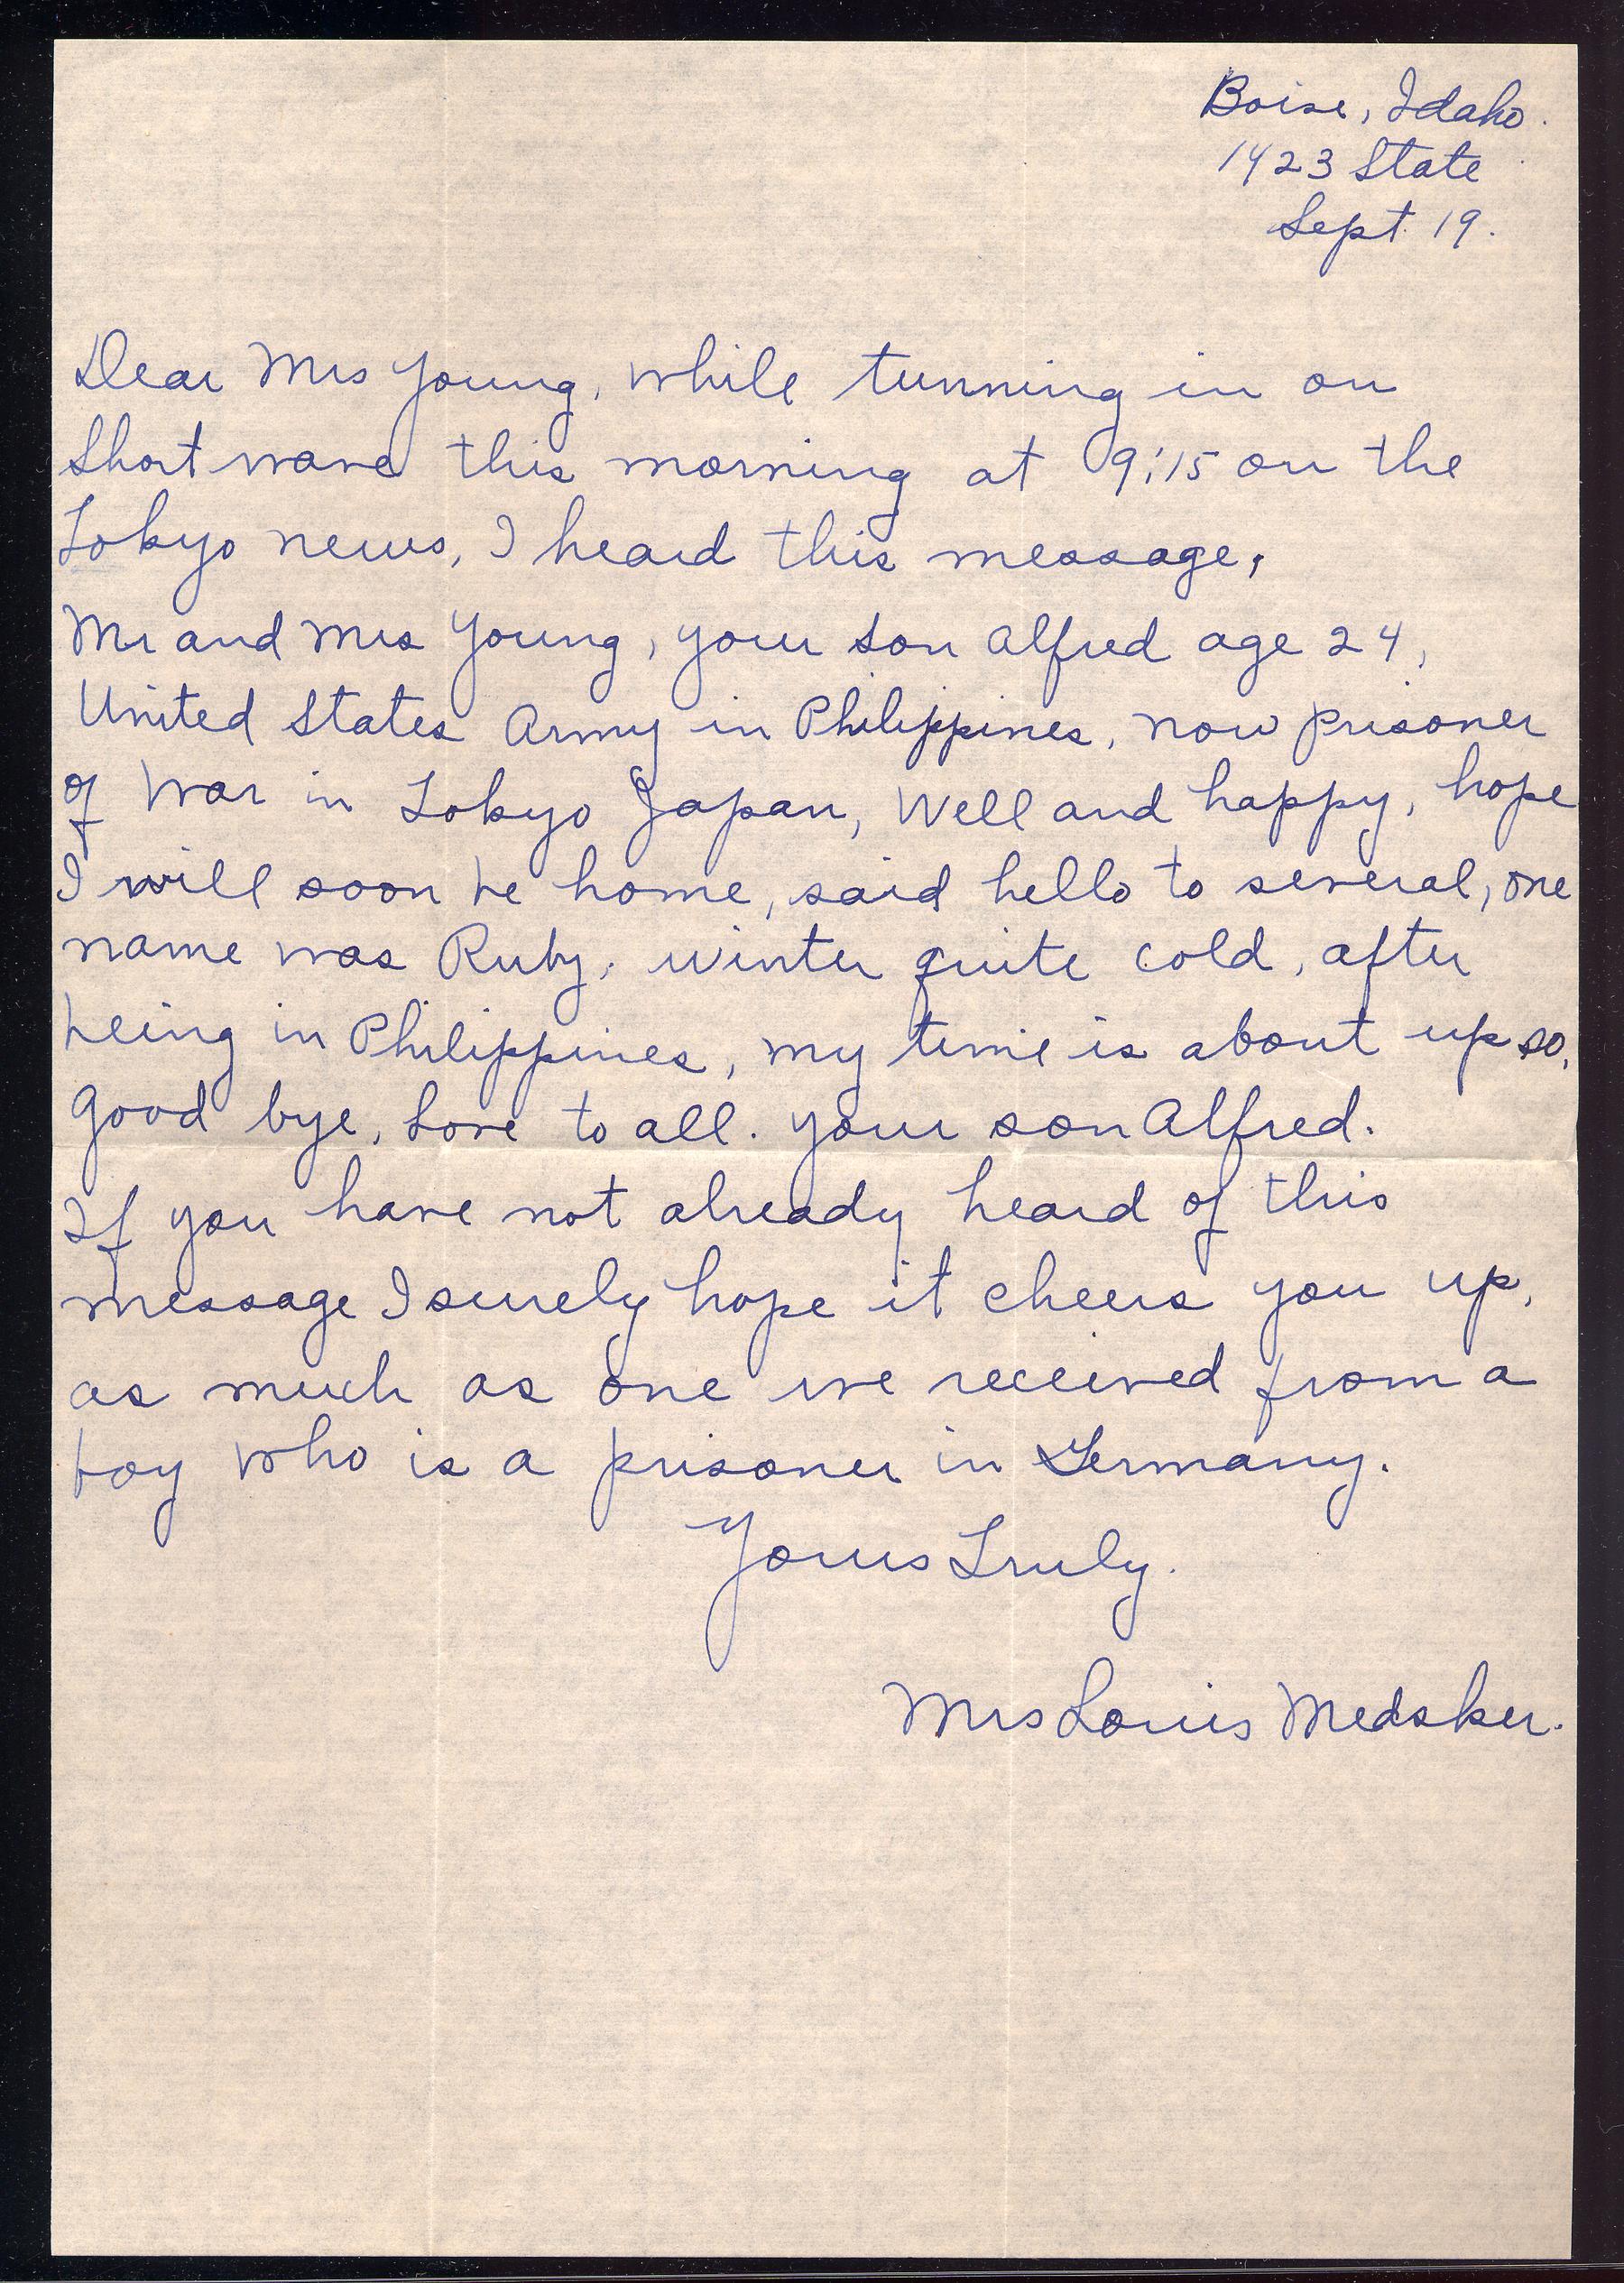 Boise, Idaho.
1423 State
Sept. 19.
Dear Mrs Young, while tunning in on
Short wave this morning at 9:15 on the
Tokyo news, I heard this message,
Mr and Mrs Young, your son Alfred age 24,
United States Army in Philippines, now prisoner
of War in Tokyo Japan, Well and happy, hope
I will soon be home, said hello to several, one
name was Ruby, winter quite cold, after
being in Philippines, my time is about up so,
Good bye, Love to all. your son Alfred.
If you have not already heard of this
message I surely hope it cheers you up,
as much as one we received from a
boy who is a prisoner in Germany.
Yours Truly.
Mrs Louis Medsker.